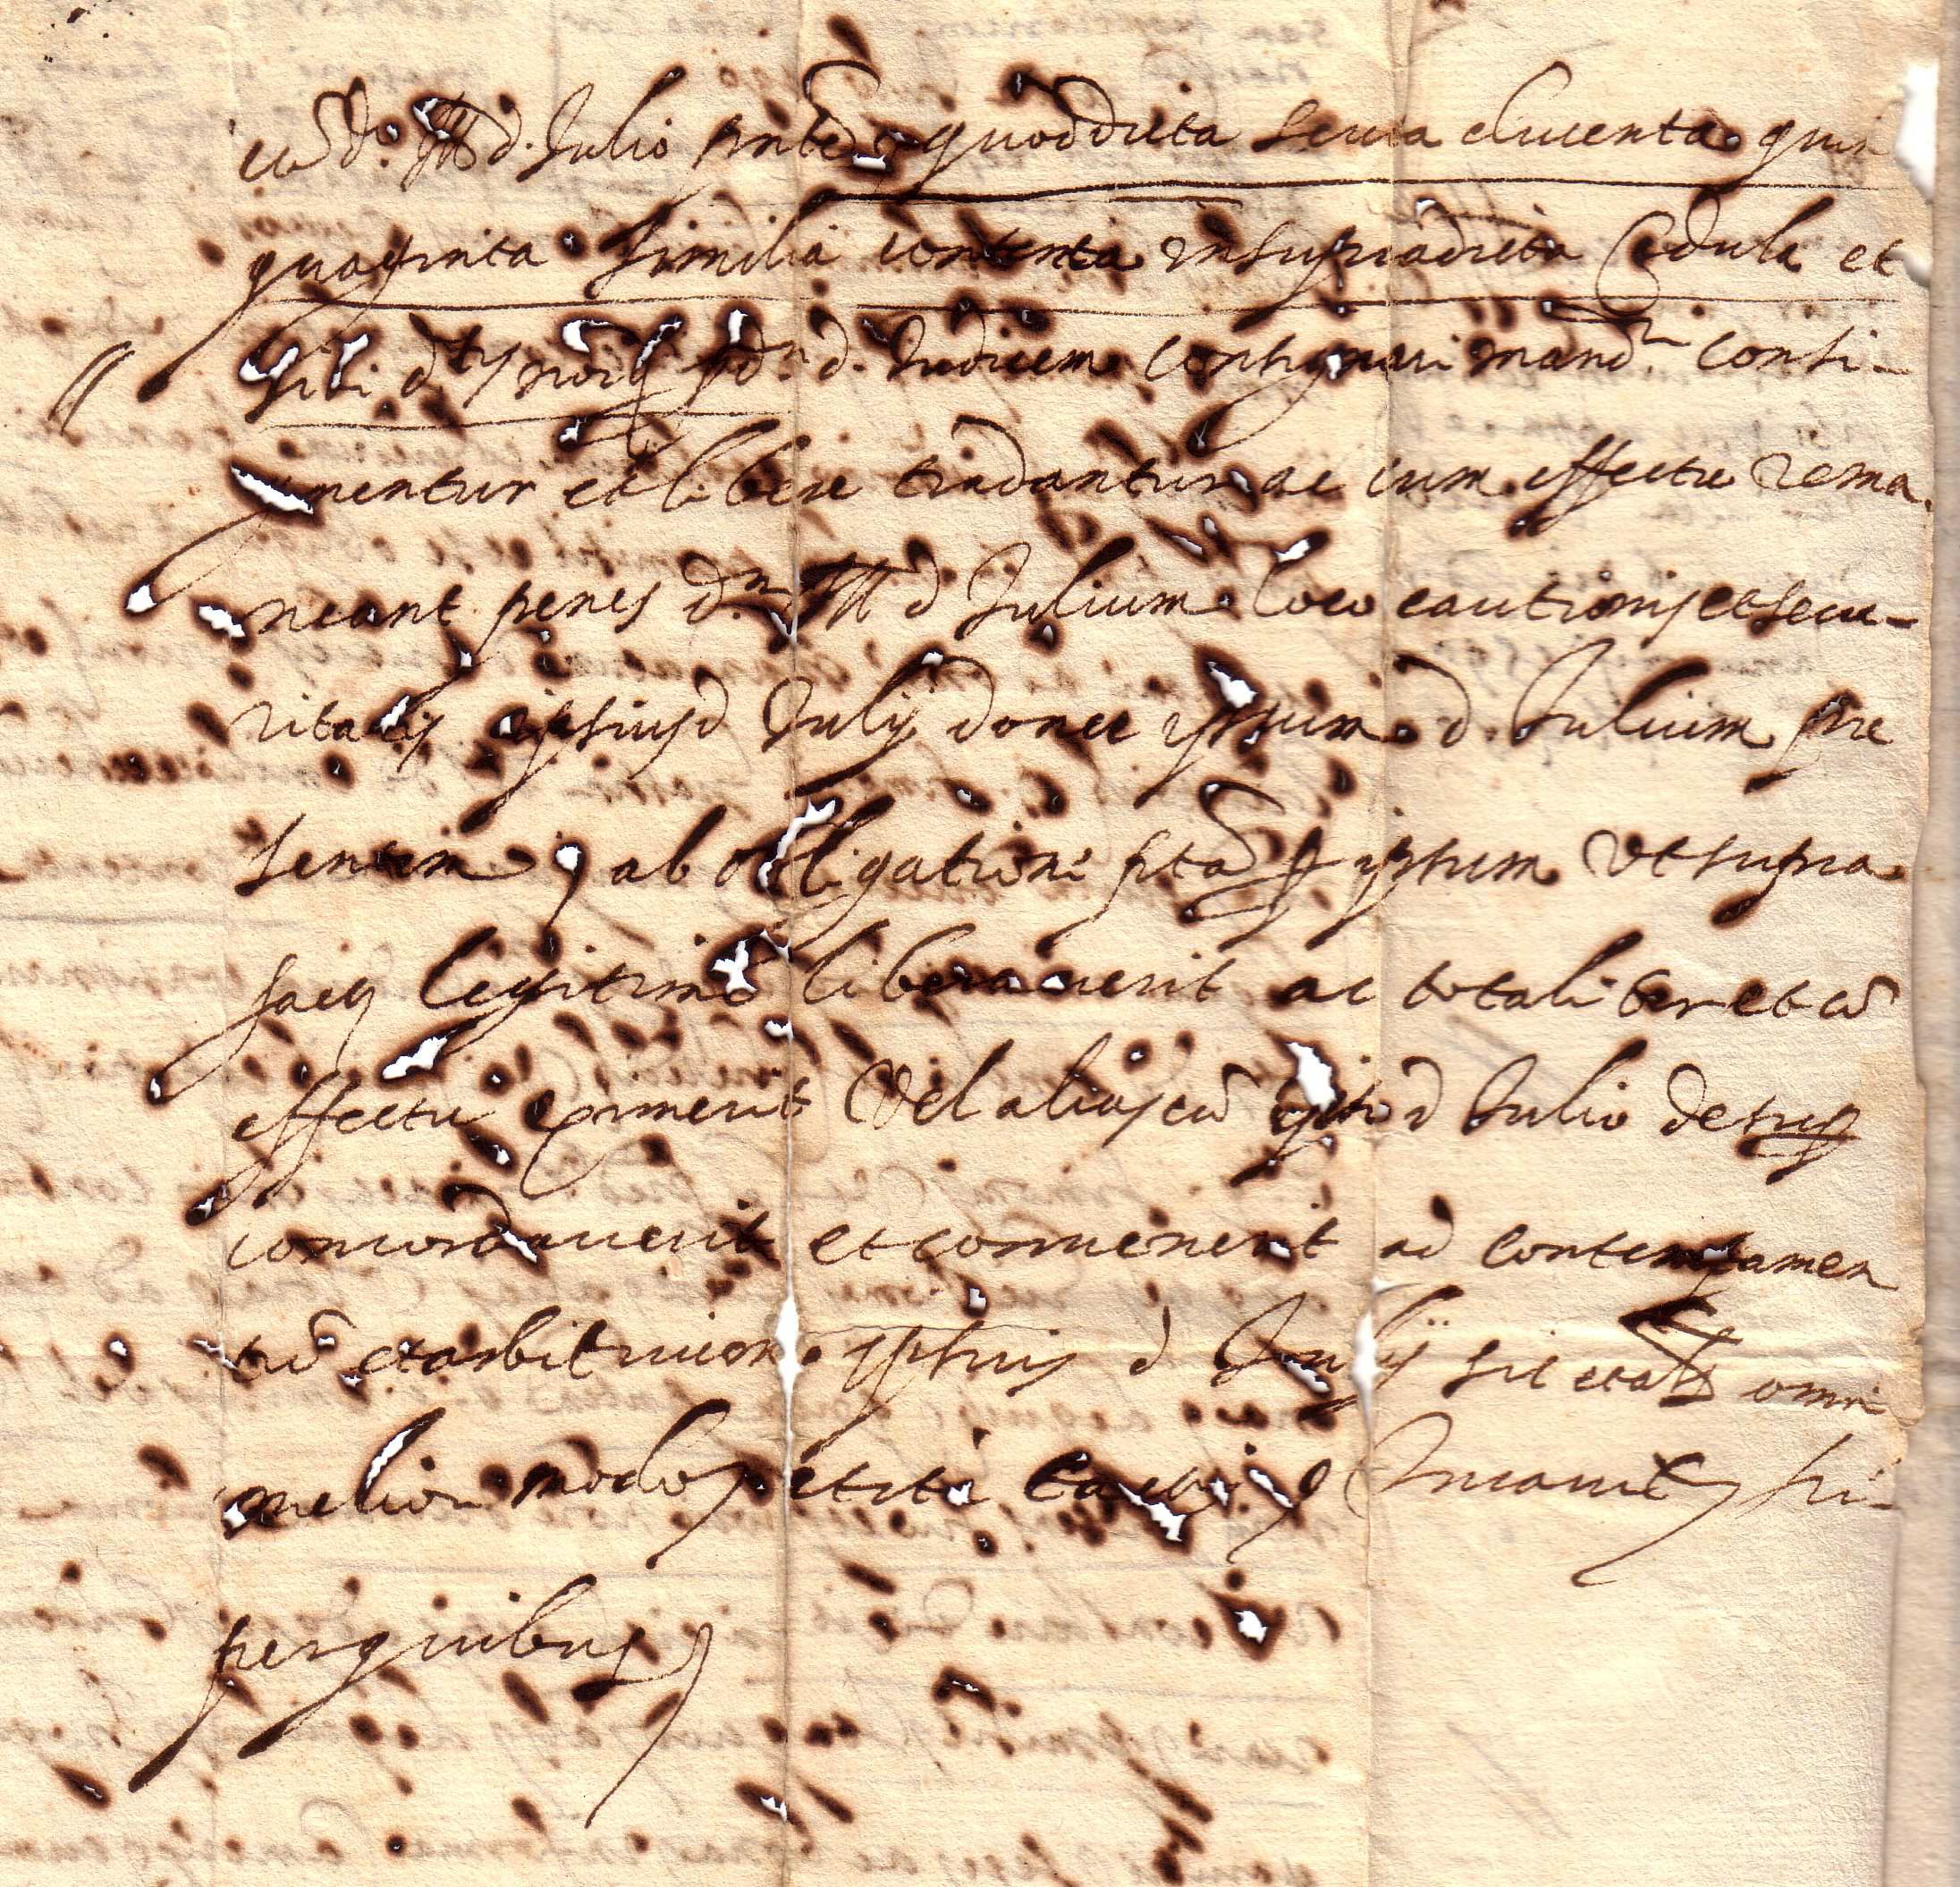 cū d.º Ill. d. Julio pnte quod dicta scuta ducenta quin
quaginta similia contenta in supradicta Cedula et
sibi d. Judicem consignari mand. consi-
gnentur et libere tradantur ac cum effectu rema
neant penes d. Ill d Julium loco cautionis et secu-
ritatis ipsius d Julij donec ipsum d. Julium pre
sentem ab obligatione pta p ipsum ut supra
facta legitime liberauerit ac totaliter et cū
effectu exemerit Vel alias cū ipso d Julio de sup
concordauerit et conuenerit ad contentamen
tū et arbitrium ipsius d Julij sic et als omni
meliori modo petita
per quibus